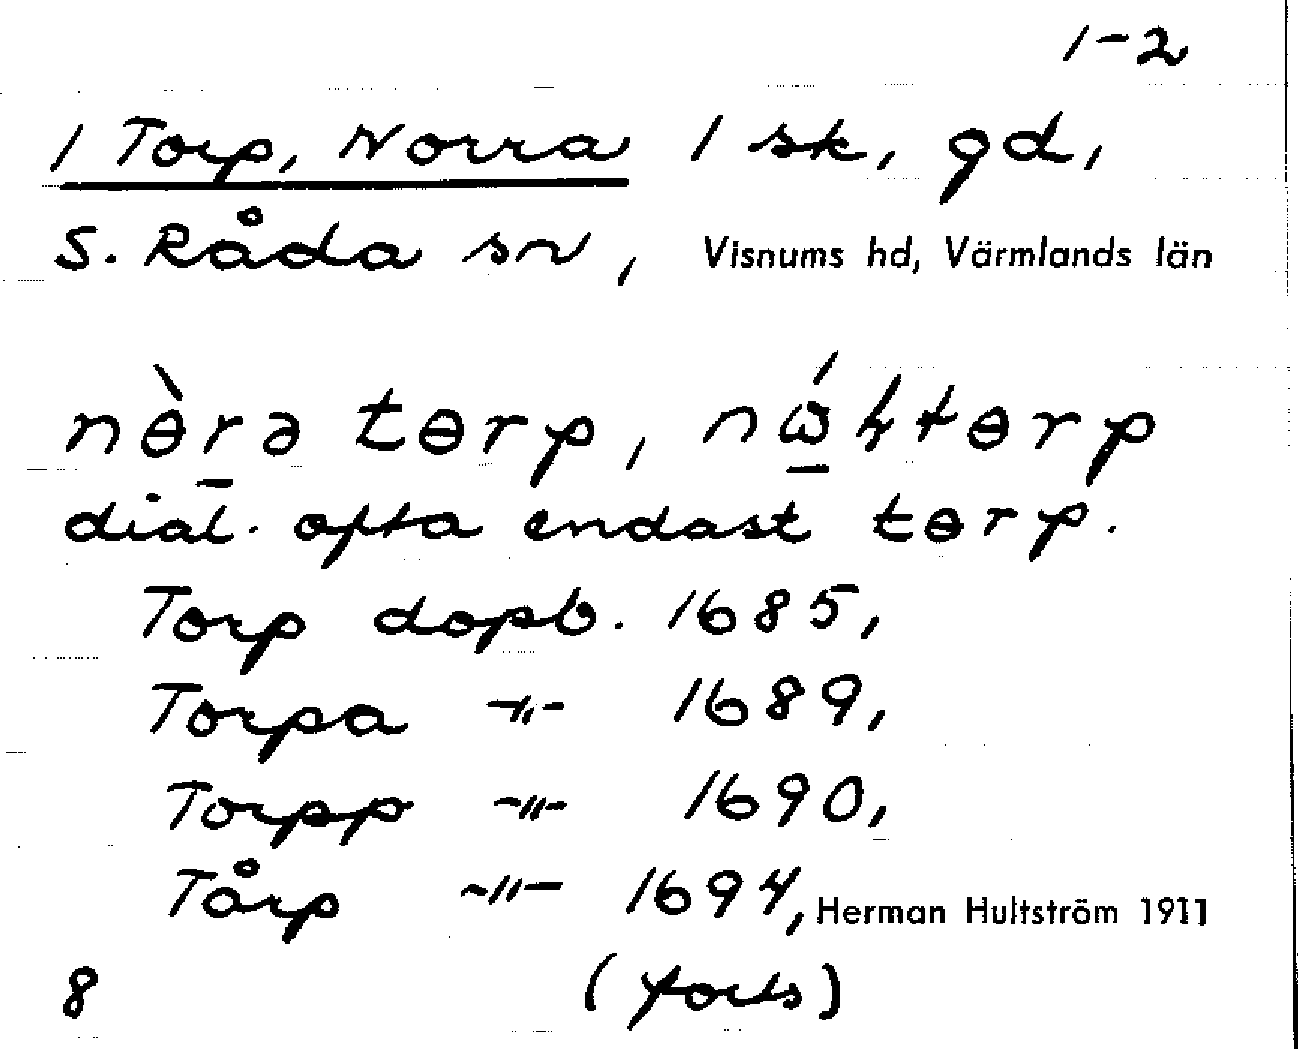 1-2
1 Torp, Norra 1 sk, gd,
S. Råda sn, Visnums hd, Värmlands län
nɵ̀rə tɵrp,
dial. ofta endast tɵrp.
Torp dopb. 1685,
Torpa -"- 1689,
Torpp -"- 1690,
Tårp -"- 1694, Herman Hultström 1911
8 (forts)